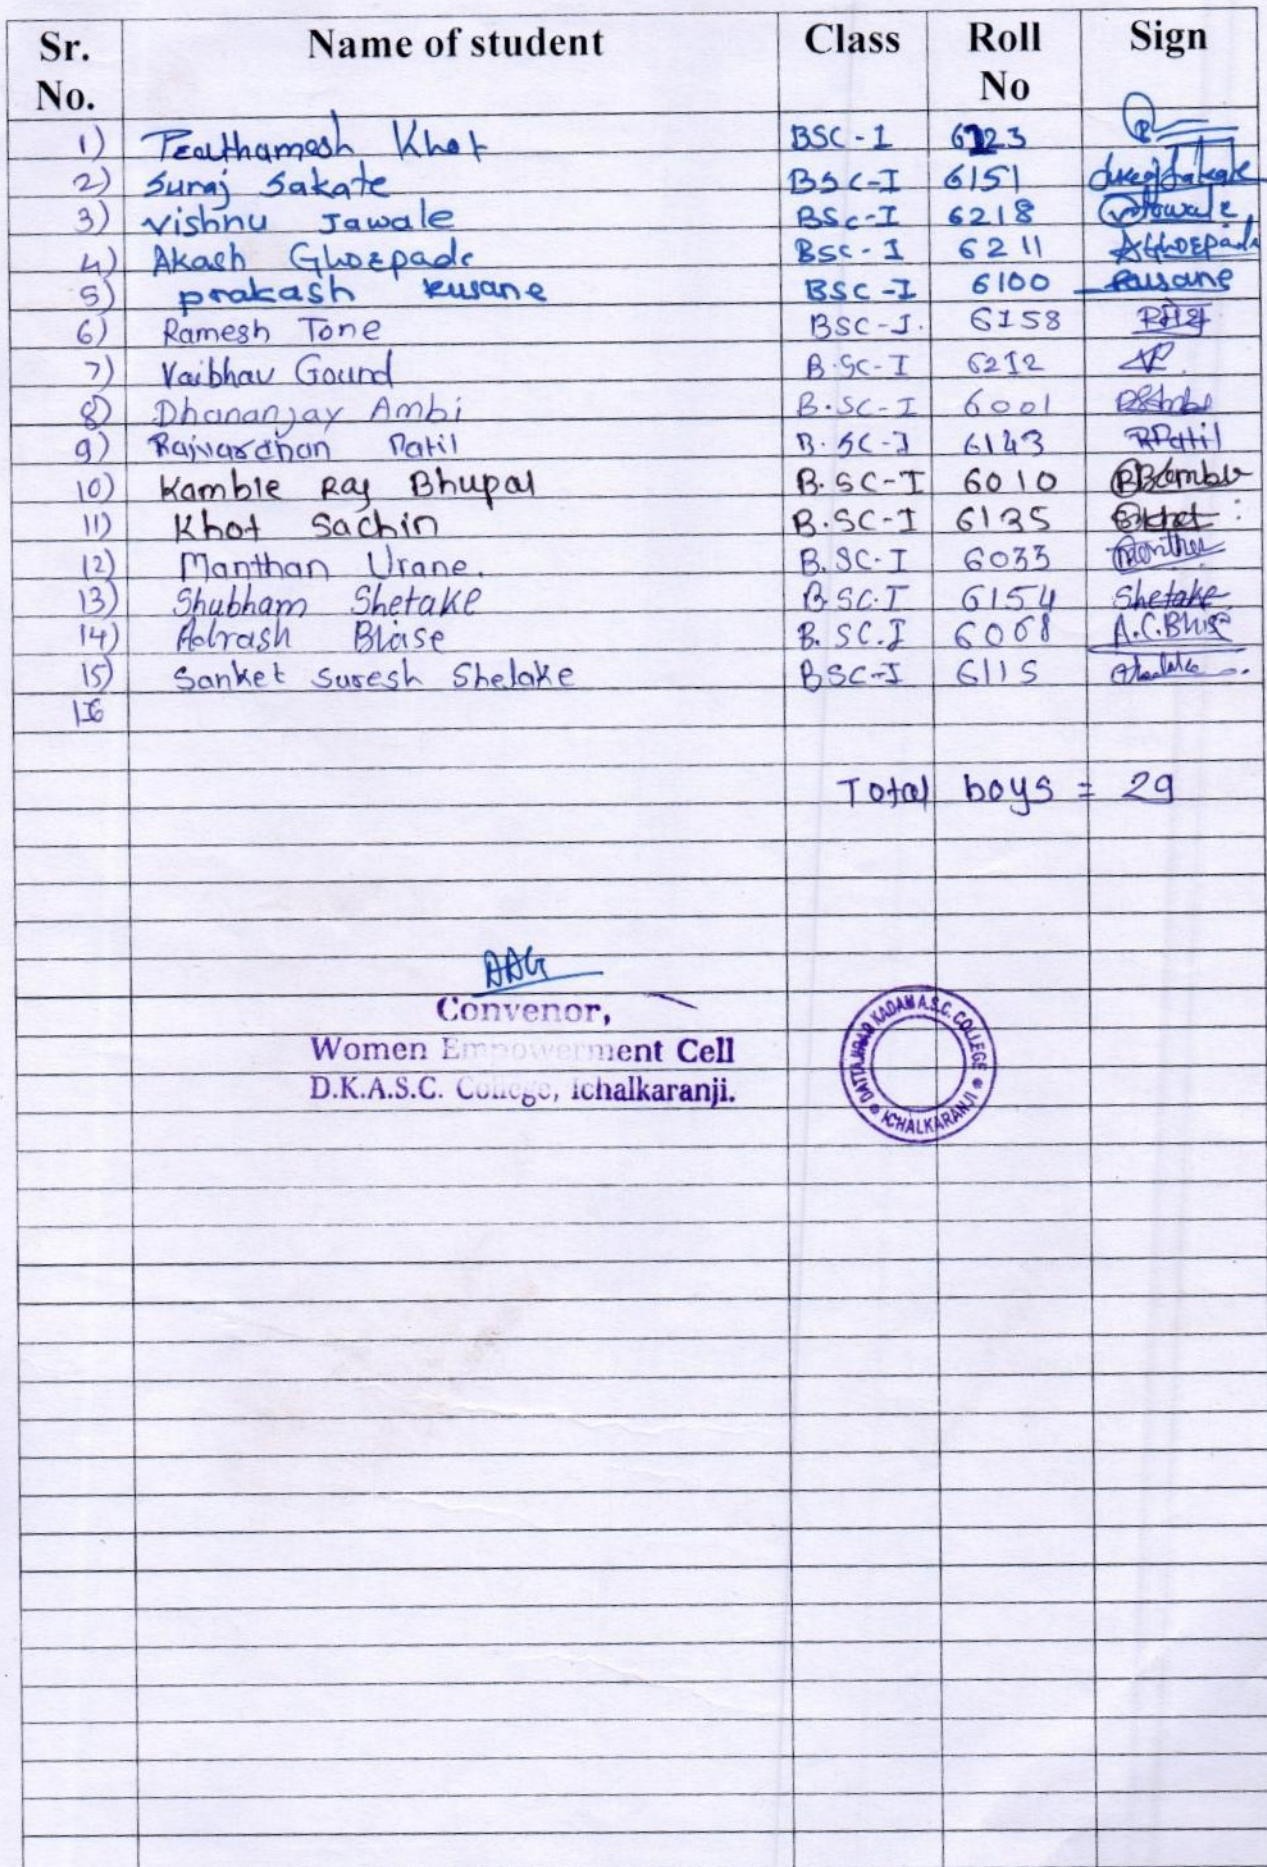 Sr. No. Name of student Class Roll No Sign
1) Prathamesh Khot BSC-I 6123
2) Suraj Sakate BSC-I 6151 Suraj Sakate
3) Vishnu Jawale BSC-I 6218 VJawale
4) Akash Ghorpade BSC-I 6211 AGhorpade
5) prakash kusane BSC-I 6100 kusane
6) Ramesh Tone BSC-I. 6158
7) Vaibhav Gourd B.SC-I 6212
8) Dhananjay Ambi B.SC-I 6001
9) Rajvardhan Patil B.SC-I 6143 RPatil
10) Kamble Raj Bhupal B.SC-I 6010
11) Khot Sachin B.SC-I 6135
12) Manthan Urane. B.SC-I 6033 Manthan
13) Shubham Shetake B.SC.I 6154 Shetake
14) Adrash Bhise B.SC.I 6068 A.C.Bhise
15) Sanket Suresh Shelake BSC-I 6115
16
Total boys = 29
Convenor,
Women Empowerment Cell
D.K.A.S.C. College, Ichalkaranji.
DATTAJIRAO KADAM A.S.C. COLLEGE
ICHALKARANJI